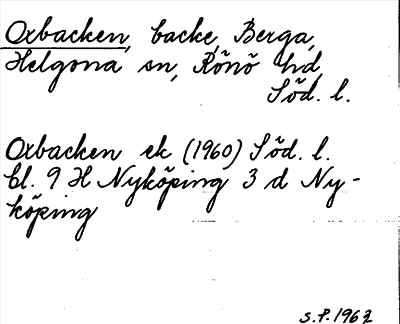 Oxbacken, backe, Berga,
Helgona sn, Rönö hd,
Söd. l.
Oxbacken ek (1960) Söd. l.
bl. 9 H Nyköping 3 d Ny-
köping
S.P. 1962